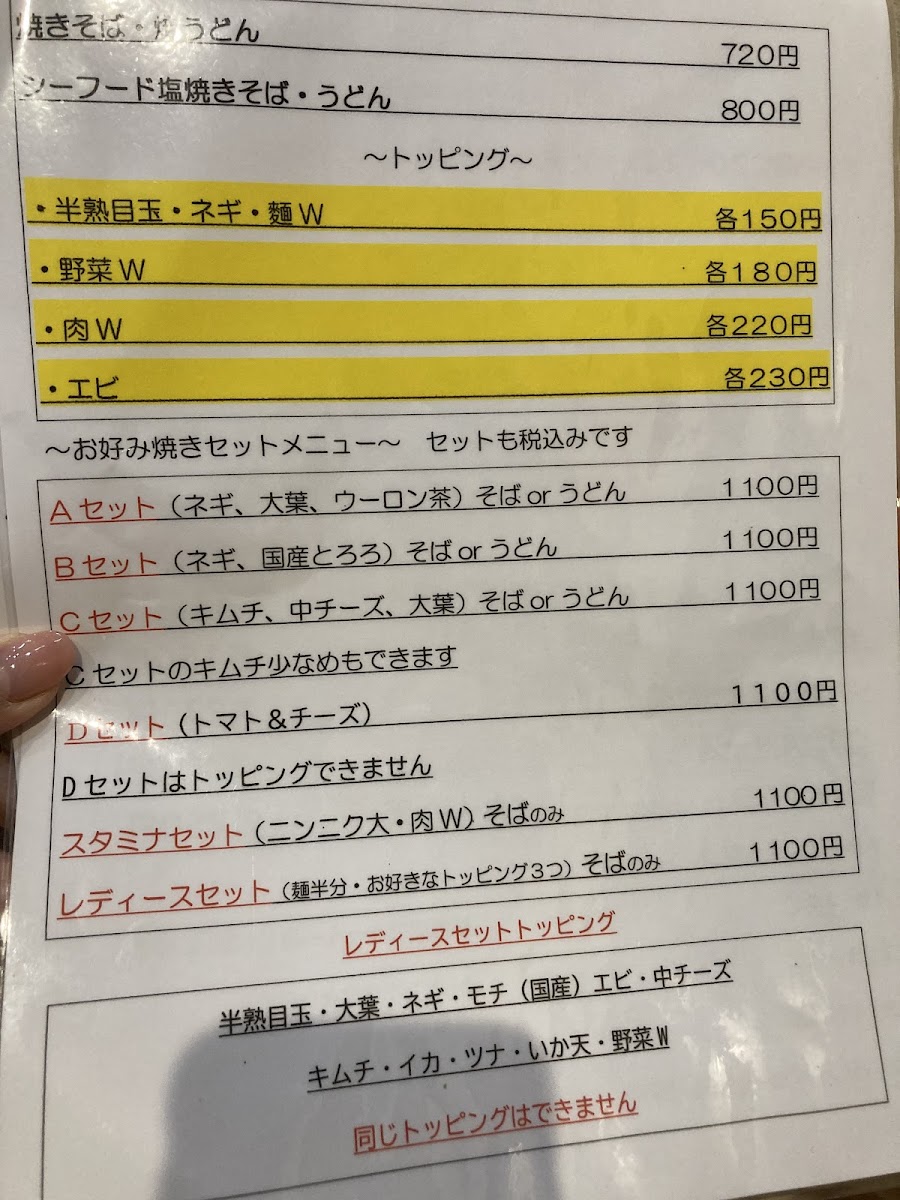 焼きそば・焼うどん 720円
シーフード塩焼きそば・うどん 800円
～トッピング～
・半熟目玉・ネギ・麺W 各150円
・野菜W 各180円
・肉W 各220円
・エビ 各230円
～お好み焼きセットメニュー～ セットも税込みです
Aセット（ネギ、大葉、ウーロン茶）そばorうどん 1100円
Bセット（ネギ、国産とろろ）そばorうどん 1100円
Cセット（キムチ、中チーズ、大葉）そばorうどん 1100円
Cセットのキムチ少なめもできます
Dセット（トマト＆チーズ） 1100円
Dセットはトッピングできません
スタミナセット（ニンニク大・肉W）そばのみ 1100円
レディースセット（麺半分・お好きなトッピング3つ）そばのみ 1100円
レディースセットトッピング
半熟目玉・大葉・ネギ・モチ（国産）エビ・中チーズ
キムチ・イカ・ツナ・いか天・野菜W
同じトッピングはできません